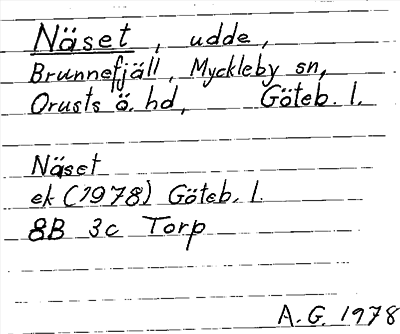 Näset, udde,
Brunnefjäll, Myckleby sn,
Orusts ö. hd, Göteb. l.
Näset
ek (1978) Göteb. l.
8B 3c Torp
A. G. 1978